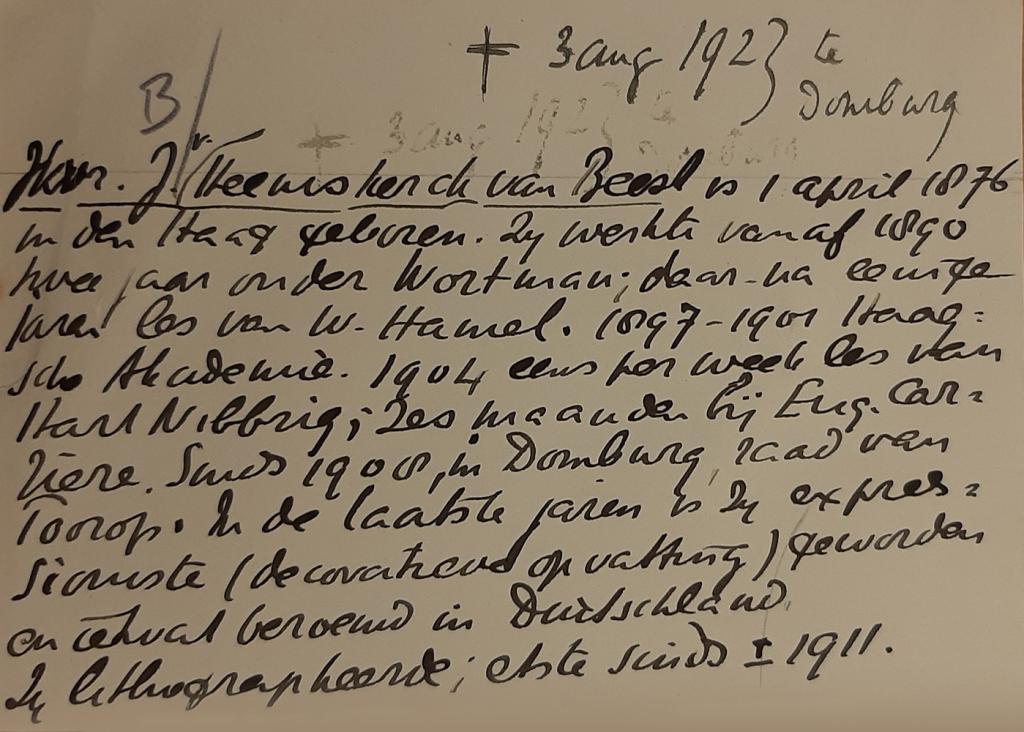 + 3 aug 1923 } te
Domburg
B/
Jkvr. J. v. Heemskerck van Beest is 1 april 1876
in den Haag geboren. Zij werkte vanaf 1890
twee jaar onder Wortman; daar-na eenige
jaren les van W. Hamel. 1897-1901 Haag=
sche Akademie. 1904 eens per week les van
Hart Nibbrig; zes maanden bij Eug. Car=
rière. Sinds 1908, in Domburg, raad van
Toorop. In de laatste jaren is zij expres=
sioniste (decoratieve opvatting) geworden
en is beroemd in Duitschland.
Zij lithographeerde; etste sinds ± 1911.